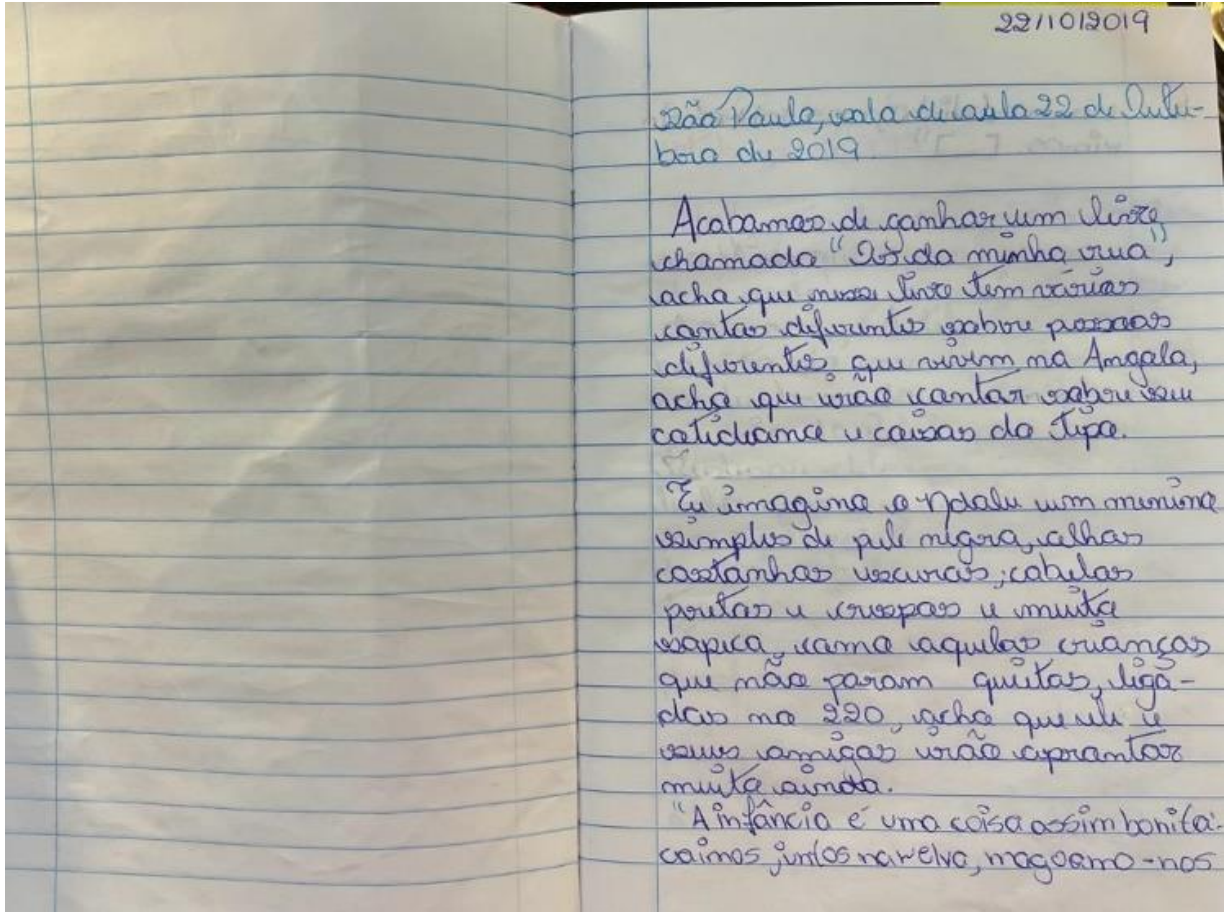 22/10/2019
São Paulo, sala de aula 22 de Outu-
bro de 2019.
Acabamos de ganhar um livro
chamado "Os da minha rua",
acho que nesse livro tem vários
contos diferentes sobre pessoas
diferentes que vivem na Angola,
acho que irão contar sobre seu
cotidiano e coisas do tipo.
Eu imagino o Ndalu um menino
simples de pele negra, olhos
castanhos escuros, cabelos
pretos e crespos e muito
sapeca, como aquelas crianças
que não param quietas, liga-
das no 220, acho que ele e
seus amigos irão aprontar
muito ainda.
"A infância é uma coisa assim bonita:
caímos juntos na relva, magoamo-nos